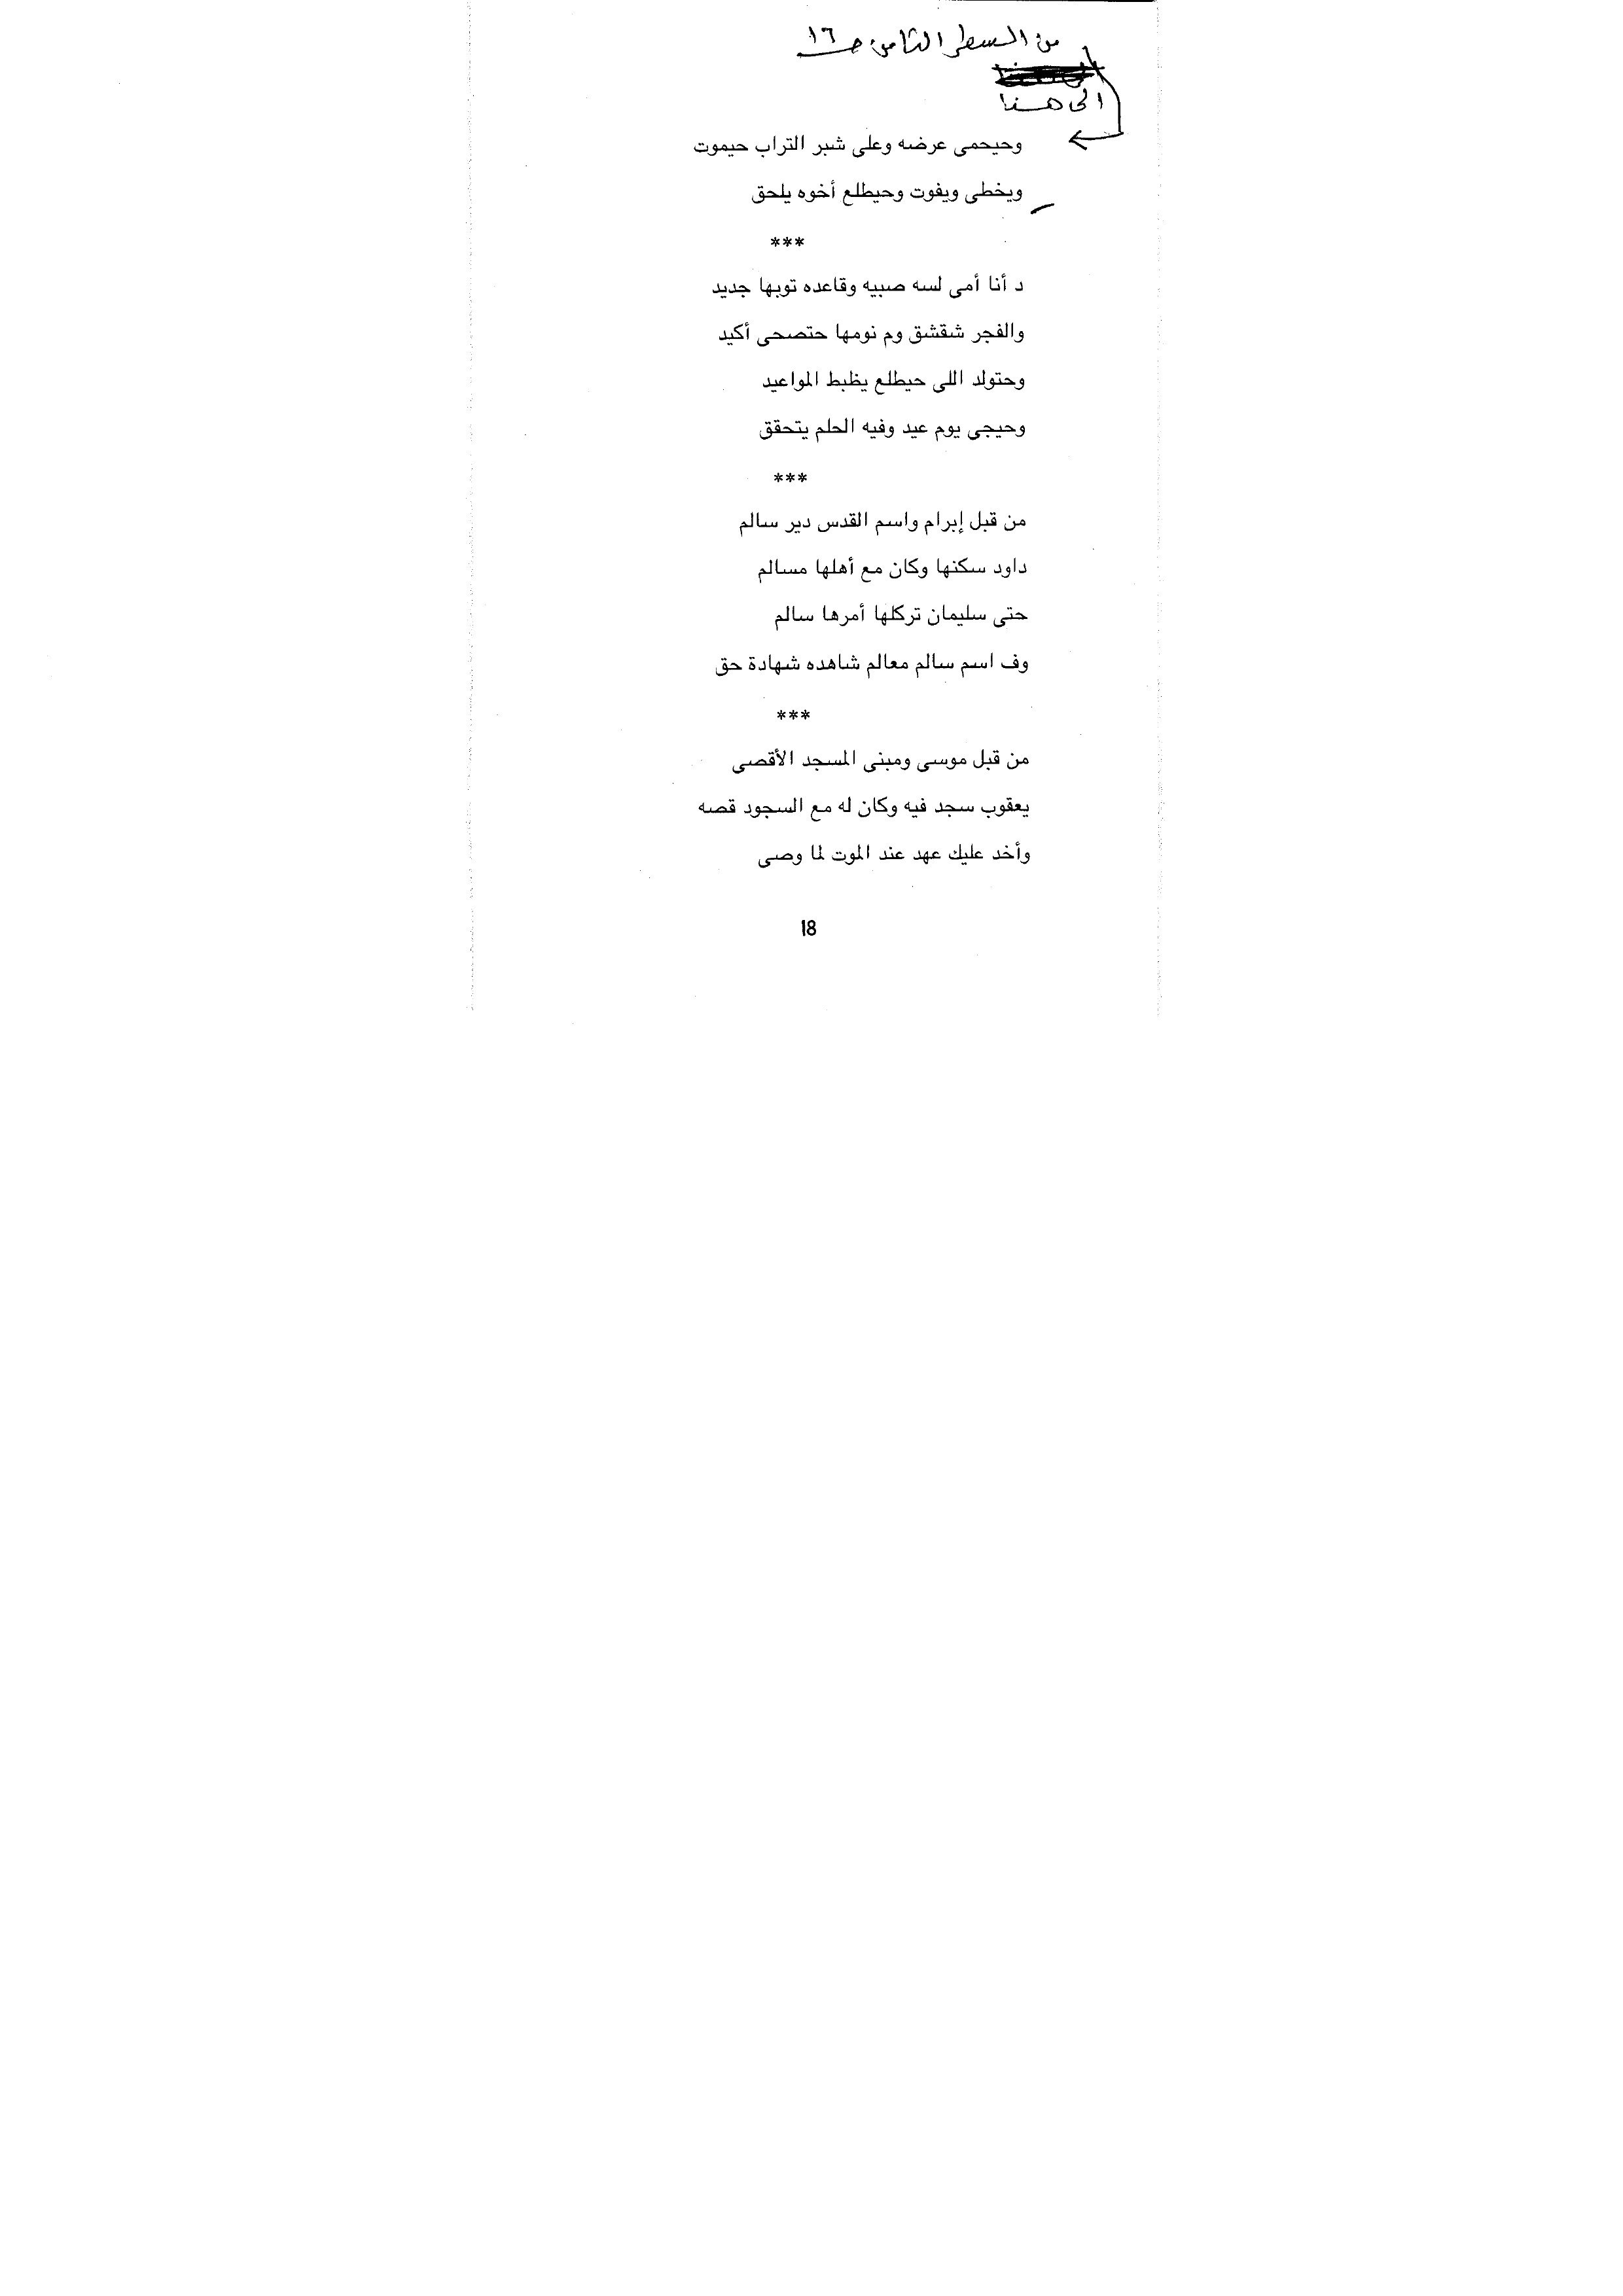 من السطر الثامن صـ ١٦
الى هنا
وحيحمى عرضه وعلى شبر التراب حيموت
ويخطى ويفوت وحيطلع أخوه يلحق
***
د أنا أمى لسه صبيه وقاعده توبها جديد
والفجر شقشق وم نومها حتصحى أكيد
وحتولد اللى حيطلع يظبط المواعيد
وحيجى يوم عيد وفيه الحلم يتحقق
***
من قبل إبرام واسم القدس دير سالم
داود سكنها وكان مع أهلها مسالم
حتى سليمان تركلها أمرها سالم
وف اسم سالم معالم شاهده شهادة حق
***
من قبل موسى ومبنى المسجد الأقصى
يعقوب سجد فيه وكان له مع السجود قصه
وأخد عليك عهد عند الموت لما وصى
18